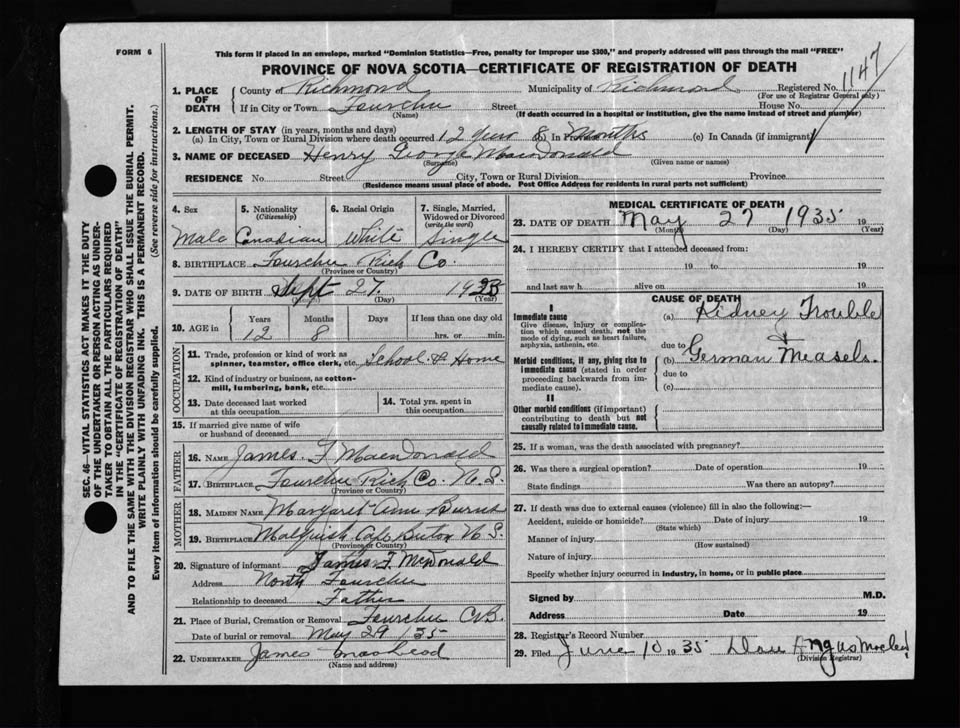 FORM 6
This form if placed in an envelope, marked "Dominion Statistics—Free, penalty for improper use $300," and properly addressed will pass through the mail "FREE"
1147
PROVINCE OF NOVA SCOTIA—CERTIFICATE OF REGISTRATION OF DEATH
1. PLACE OF DEATH
County of Richmond Municipality of Richmond Registered No.
(For use of Registrar General only)
If in City or Town Fourchu Street House No.
(Name) (If death occurred in a hospital or institution, give the name instead of street and number)
2. LENGTH OF STAY (in years, months and days)
(a) In City, Town or Rural Division where death occurred 12 years 8 (b) In months (c) In Canada (if immigrant)
3. NAME OF DECEASED Henry George MacDonald
(Surname) (Given name or names)
RESIDENCE No. Street City, Town or Rural Division Province
(Residence means usual place of abode. Post Office Address for residents in rural parts not sufficient)
4. Sex 5. Nationality (Citizenship) 6. Racial Origin 7. Single, Married, Widowed or Divorced (write the word)
Male Canadian White Single
8. BIRTHPLACE Fourchu Rich Co.
(Province or Country)
9. DATE OF BIRTH Sept 27 1923
(Month) (Day) (Year)
10. AGE in Years Months Days If less than one day old
12 8 hrs. or min.
OCCUPATION
11. Trade, profession or kind of work as spinner, teamster, office clerk, etc. School & Home
12. Kind of industry or business, as cotton-mill, lumbering, bank, etc.
13. Date deceased last worked at this occupation
14. Total yrs. spent in this occupation
15. If married give name of wife or husband of deceased
FATHER
16. Name James F MacDonald
17. Birthplace Fourchu Rich Co. N.S.
(Province or Country)
MOTHER
18. Maiden Name Margaret Ann Burns
19. Birthplace Cape Breton N S.
(Province or Country)
20. Signature of informant James F. McDonald
Address North Fourchu
Relationship to deceased Father
21. Place of Burial, Cremation or Removal Fourchu C.B.
Date of burial or removal May 29/35
22. UNDERTAKER James
(Name and address)
MEDICAL CERTIFICATE OF DEATH
23. DATE OF DEATH May 27 1935 19
(Month) (Day) (Year)
24. I HEREBY CERTIFY that I attended deceased from:
19 to 19
and last saw h alive on 19
CAUSE OF DEATH
I
Immediate cause (a) Kidney Trouble
Give disease, injury or complication which caused death, not the mode of dying, such as heart failure, asphyxia, asthenia, etc.
due to +
Morbid conditions, if any, giving rise to immediate cause (stated in order proceeding backwards from immediate cause).
(b) German Measels.
due to
(c)
II
Other morbid conditions (if important) contributing to death but not causally related to immediate cause.
25. If a woman, was the death associated with pregnancy?
26. Was there a surgical operation? Date of operation 19
State findings Was there an autopsy?
27. If death was due to external causes (violence) fill in also the following:—
Accident, suicide or homicide? Date of injury 19
(State which)
Manner of injury
(How sustained)
Nature of injury
Specify whether injury occurred in industry, in home, or in public place
Signed by M.D.
Address Date 19
28. Registrar's Record Number
29. Filed June 10 1935 Dan Angus
(Division Registrar)
SEC. 46—VITAL STATISTICS ACT MAKES IT THE DUTY
OF THE UNDERTAKER OR PERSON ACTING AS UNDER-
TAKER TO OBTAIN ALL THE PARTICULARS REQUIRED
IN THE "CERTIFICATE OF REGISTRATION OF DEATH"
AND TO FILE THE SAME WITH THE DIVISION REGISTRAR WHO SHALL ISSUE THE BURIAL PERMIT.
WRITE PLAINLY WITH UNFADING INK. THIS IS A PERMANENT RECORD.
Every item of information should be carefully supplied. (See reverse side for instructions.)